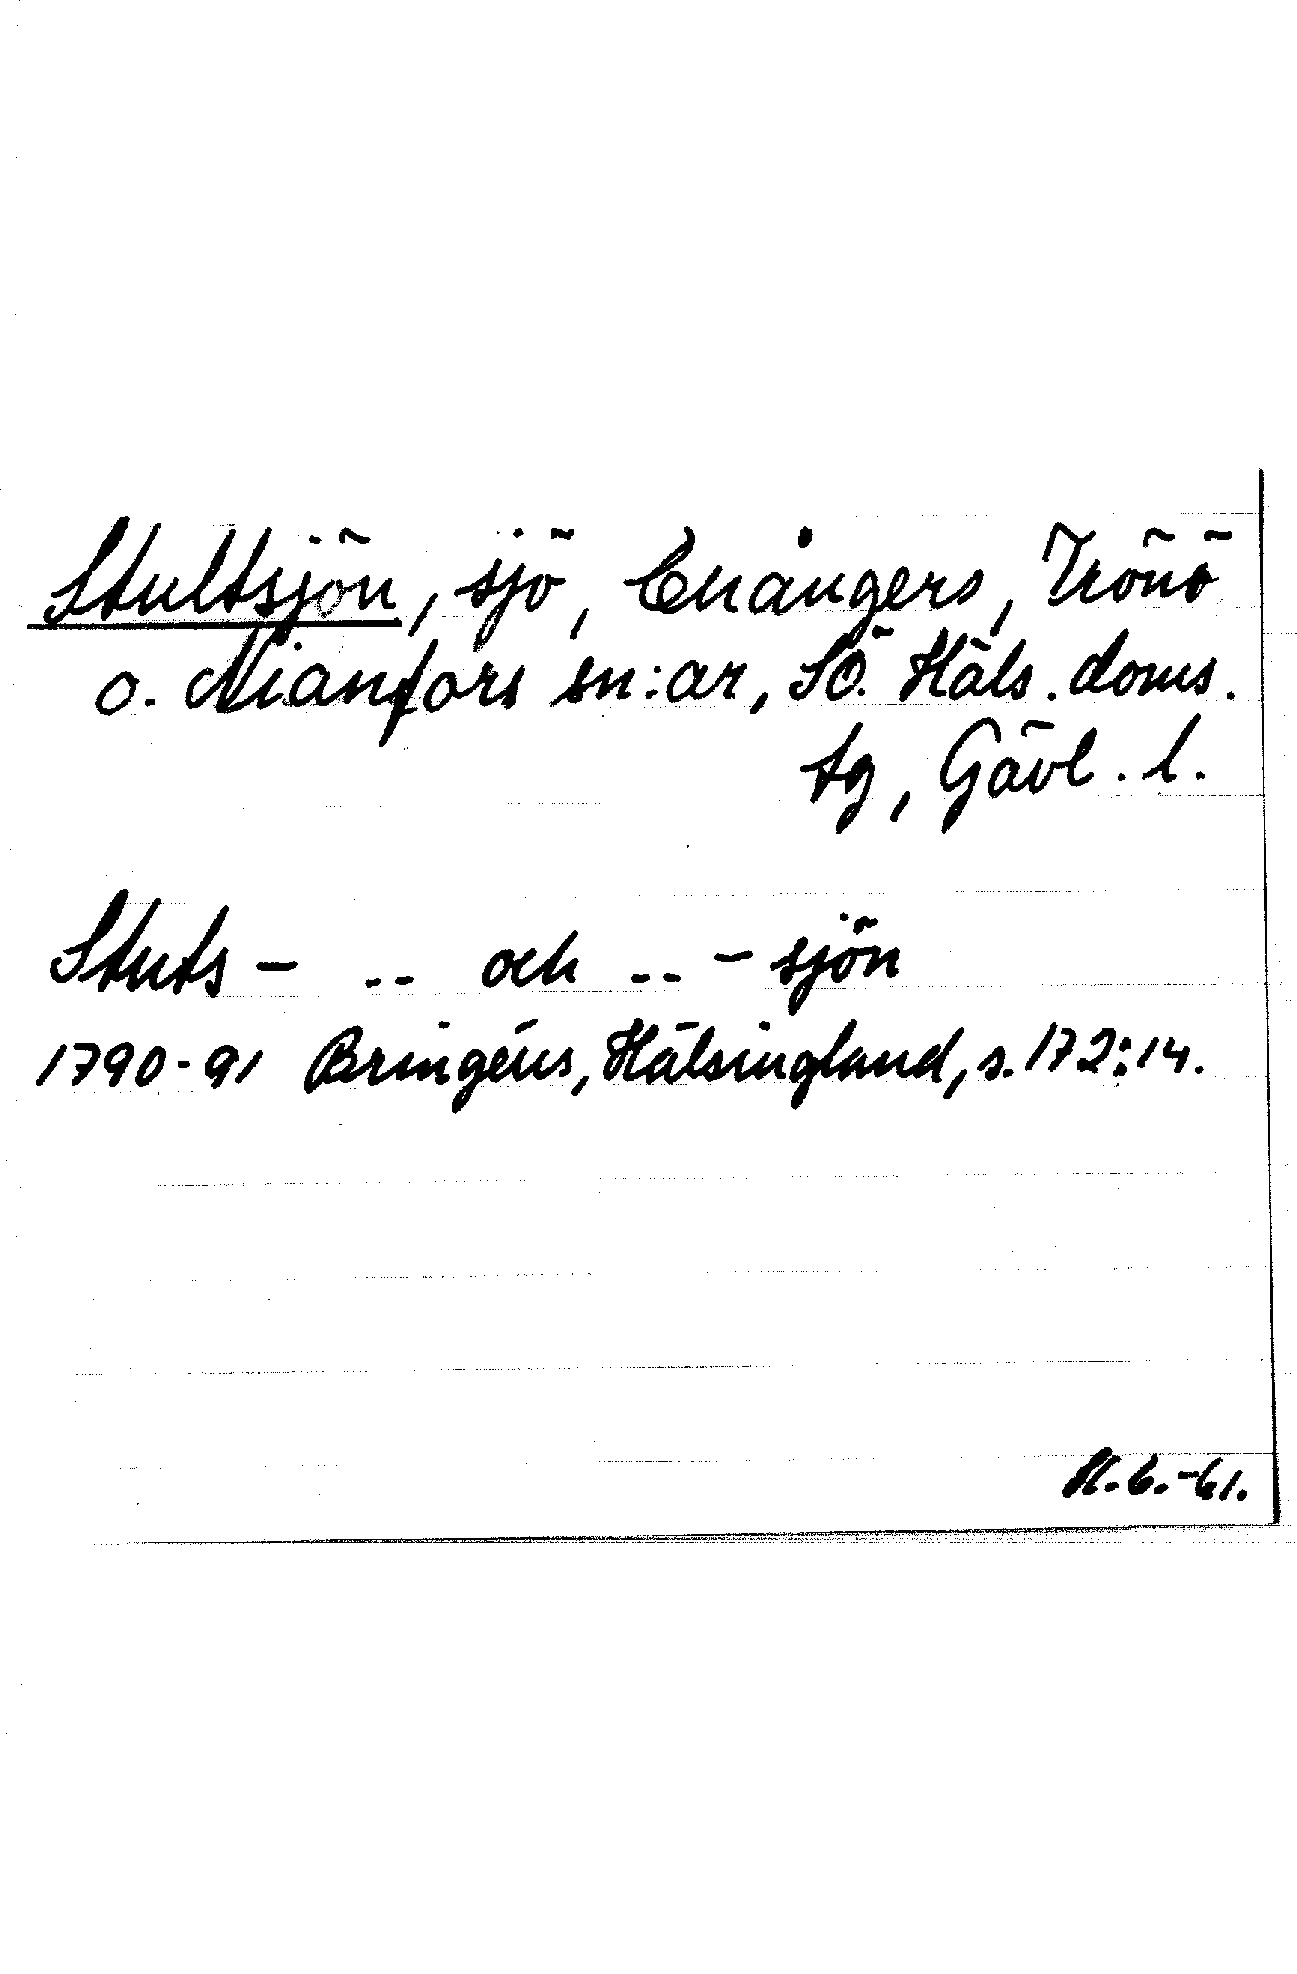 Stultsjön, sjö, Enångers, Trönö
o. Nianfors sn:ar, SÖ. Häls. doms.
tg, Gävl. l.
Stuts- -- och -- -sjön
1790-91 Bringéus, Hälsingland, s. 172:14.
-61.